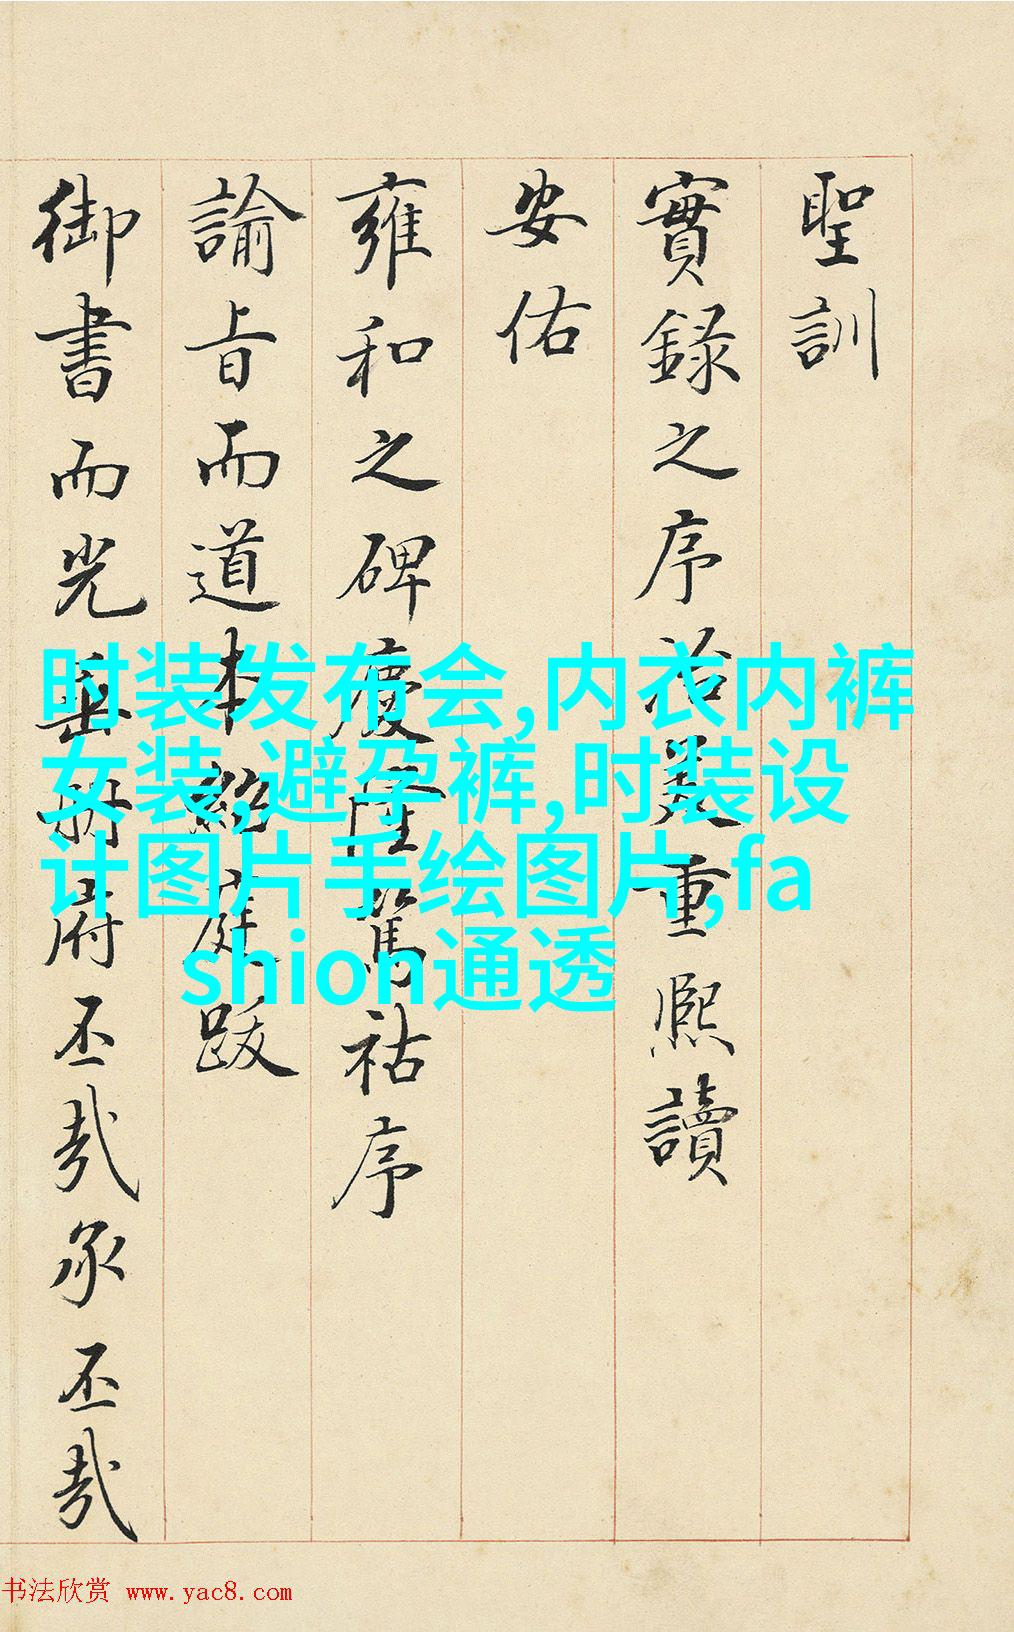 聖訓
實錄之序洽美重熈讀
安佑
雍和之碑慶隆篤祜序
諭旨而道本紹庭跋
御書而光垂冊府丕哉承丕哉
时装发布会,内衣内裤
女装,避孕裤,时装设
计图片手绘图片,fa
shion通透
书法欣赏 www.yac8.com